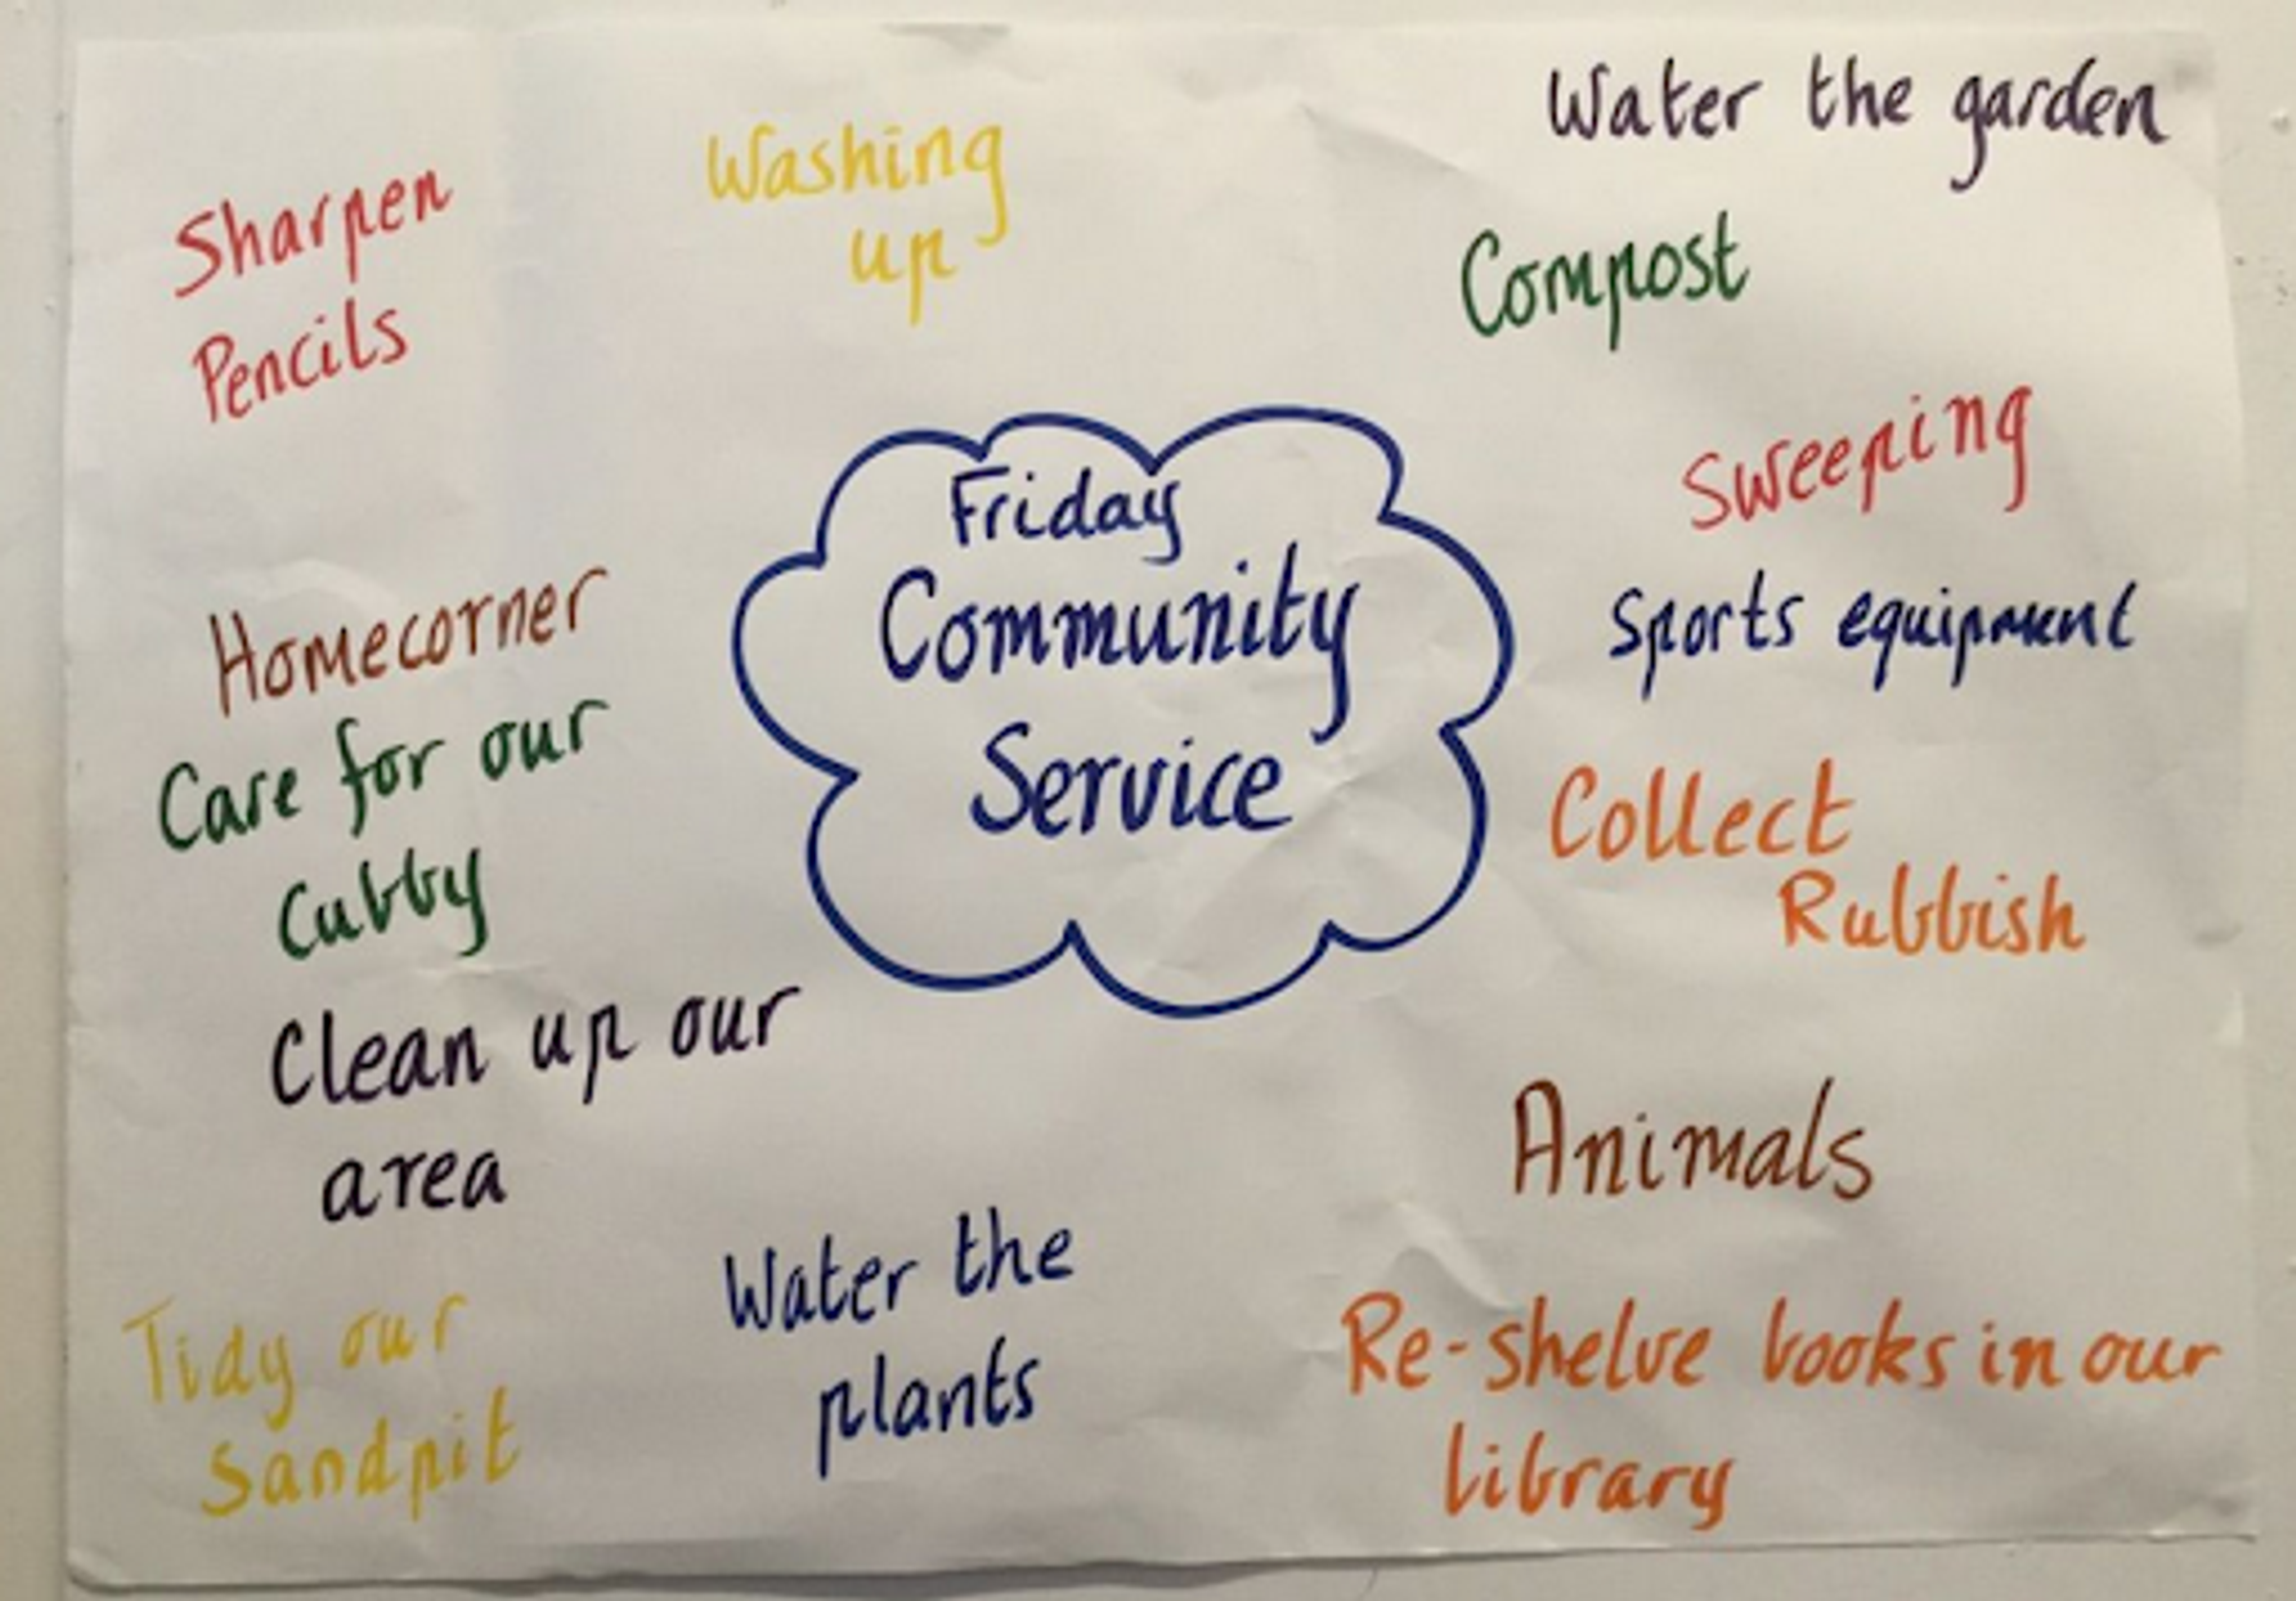 Water the garden
Washing
up
Sharpen
Pencils
Compost
Sweeping
Friday
Community
Service
Homecorner
Sports equipment
Care for our
Cubby
Collect
Rubbish
Clean up our
area
Animals
Water the
plants
Tidy our
Sandpit
Re-shelve books in our
library